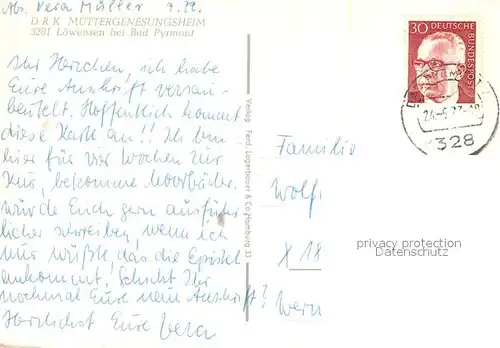 Abs. Vera Müller z. Zt.
D R K MÜTTERGENESUNGSHEIM
3281 Löwensen bei Bad Pyrmont
Ihr Herzchen, ich habe
Eure Anschrift versau-
beutelt. Hoffentlich kommt
diese Karte an!! Ich bin
hier für vier Wochen zur
Kur, bekomme Moorbäder.
würde Euch gern ausführ-
licher schreiben, wenn ich
nur wüßte, das die Epistel
ankommt. Schickt Ihr
nochmal Eure neue Anschrift?
Herzlichst Eure Vera
Verlag Ferd. Lagerbauer & Co Hamburg 33
30 DEUTSCHE BUNDESPOST
328
Familie
Wolf
X 18
Wern
privacy protection
Datenschutz